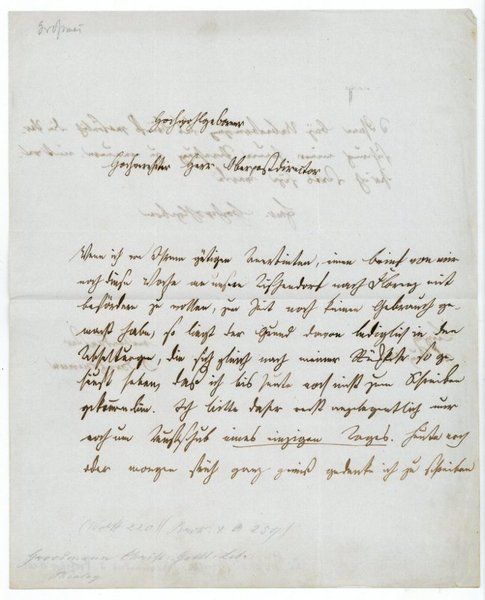 Hochwohlgeborner
Hochverehrter Herr Oberpostdirector
Wenn ich von Ihrem gütigen Anerbieten, einen Brief von mir
noch diese Woche an unsern Tischendorf nach Florenz mit
befördern zu wollen, zur Zeit noch keinen Gebrauch ge-
macht habe, so liegt der Grund davon lediglich in den
die sich gleich nach meiner Rückkehr so ge-
häuft haben, daß ich bis heute noch nicht zum Schreiben
gekommen bin. Ich bitte daher recht angelegentlich nur
noch um Aufschub eines einzigen Tages. Heute noch
oder morgen früh ganz gewiß gedenke ich zu schreiben
Grossmann Christ. Gottl. Leb.